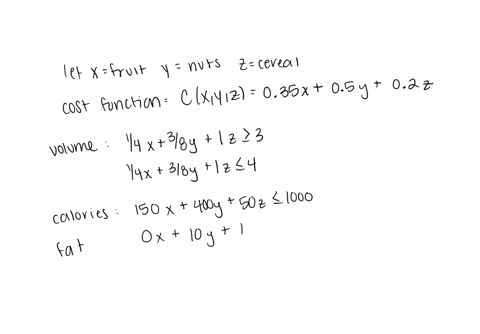 let x=fruit y=nuts z=cereal
cost function= C(x,y,z) = 0.35x + 0.5y + 0.2z
volume: 1/4x + 3/8y + 1z ≥ 3
1/4x + 3/8y + 1z ≤ 4
calories: 150x + 400y + 50z ≤ 1000
fat 0x + 10y + 1